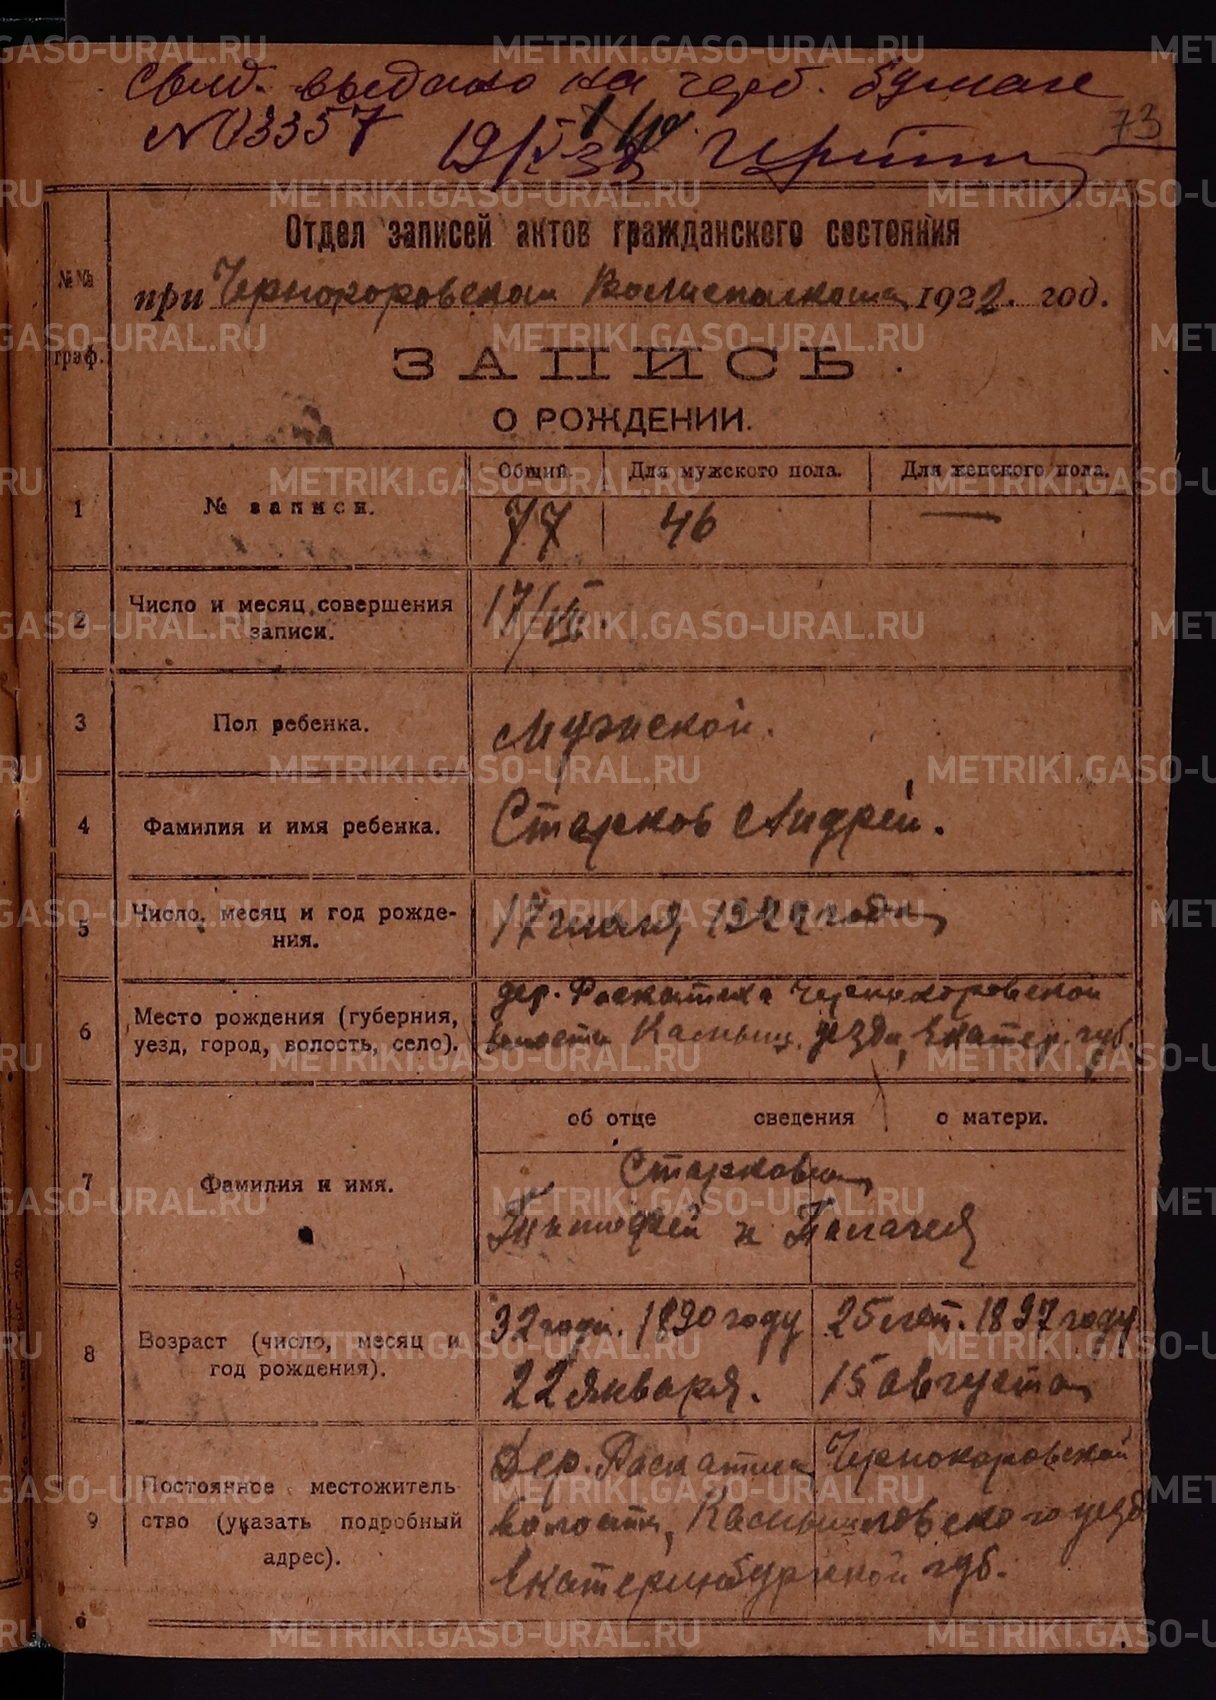 Свид. выдано на герб. бумаге
№ 03357
73
Отдел записей актов гражданского состояния
№№ граф.
при Чернокоровском Волисполкома 1922. год.
ЗАПИСЬ
О РОЖДЕНИИ.
Общий. Для мужского пола. Для женского пола.
1 № записи. 77 46 —
2 Число и месяц совершения записи. 17/VII.
3 Пол ребенка. Мужской.
4 Фамилия и имя ребенка. Старков Андрей.
5 Число, месяц и год рожде-
ния. 17 июля 1922 года
6 Место рождения (губерния, дер. Раскатиха Чернокоровской
уезд, город, волость, село). волости Камышл. уезда, Екатер. губ.
об отце сведения о матери.
7 Фамилия и имя. Старковы
Тимофей и Пелагея
8 Возраст (число, месяц и год рождения). 32 года. 1890 году 25 лет. 1897 году
22 Января. 15 августа
9 Постоянное местожитель-
ство (указать подробный
адрес). Дер. Раскатиха Чернокоровской
волости, Камышловского уезда
Екатеринбургской губ.
METRIKI.GASO-URAL.RU